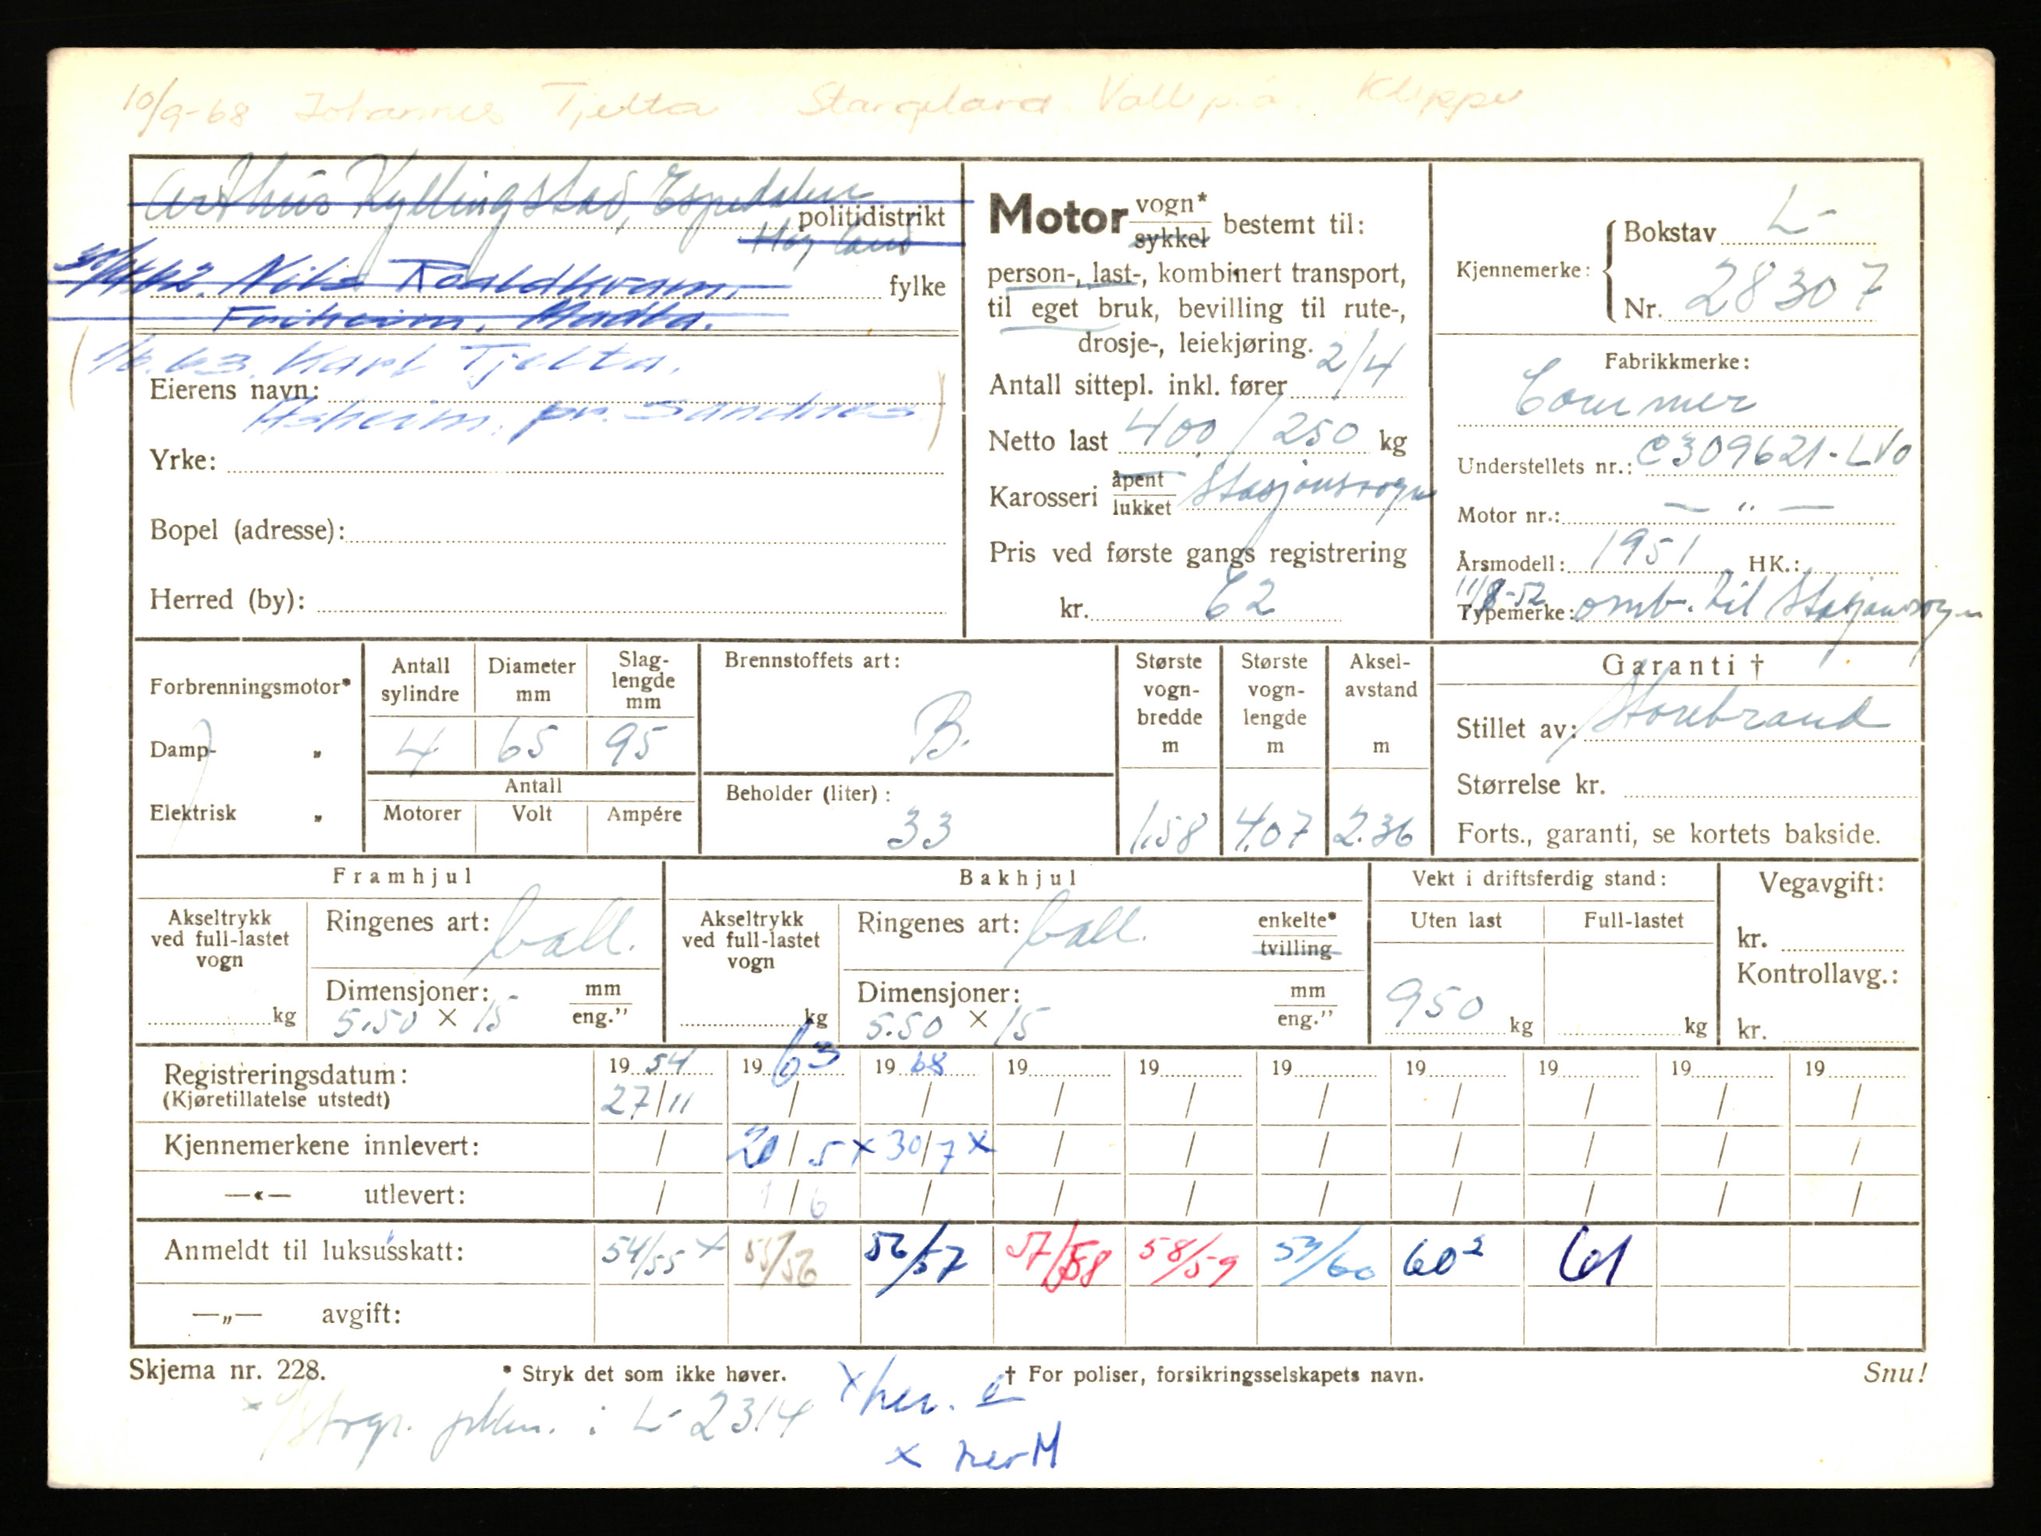 10/9-68 Johannes Tjelta Stangeland Voll p.å. Kleppe
Arthus Kyllingstad, Espedalen
politidistrikt
Høgland
Nils Roaldkvam,
fylke
Friheim, Madla.
1/6.63. Karl Tjelta.
Eierens navn:
Asheim, pr. Sandnes
Yrke:
Bopel (adresse):
Herred (by):
Motor vogn* sykkel bestemt til:
person-, last-, kombinert transport,
til eget bruk, bevilling til rute-,
drosje-, leiekjøring.
Antall sittepl. inkl. fører 2/4
Netto last 400/250 kg
Karosseri åpent lukket Stasjonsvogn
Pris ved første gangs registrering
kr. 62
Kjennemerke: Bokstav L-
Nr. 28307
Fabrikkmerke:
Commer
Understellets nr.: C309621-LVO
Motor nr.: — " —
Årsmodell: 1951 HK.:
11/8-52
Typemerke: omb. til Stasjonsvogn
Forbrenningsmotor*
Damp- „
Elektrisk „
Antall sylindre
Diameter mm
Slag- lengde mm
4 65 95
Antall
Motorer Volt Ampére
Brennstoffets art:
B.
Beholder (liter):
33
Største vogn- bredde m
1.58
Største vogn- lengde m
4.07
Aksel- avstand m
2.36
Garanti †
Stillet av: Storebrand
Størrelse kr.
Forts., garanti, se kortets bakside.
Framhjul
Akseltrykk ved full-lastet vogn
kg
Ringenes art: ball.
Dimensjoner: mm eng."
5.50 x 15
Bakhjul
Akseltrykk ved full-lastet vogn
kg
Ringenes art: ball. enkelte* tvilling
Dimensjoner: mm eng."
5.50 x 15
Vekt i driftsferdig stand:
Uten last Full-lastet
950 kg kg
Vegavgift:
kr.
Kontrollavg.:
kr.
Registreringsdatum: 19 54 19 63 19 68 19 19 19 19 19 19 19
(Kjøretillatelse utstedt) 27/11 / / / / / / / / /
Kjennemerkene innlevert: / 20/5 x 30/7 x / / / / / / /
—«— utlevert: / 1/6 / / / / / / / /
Anmeldt til luksusskatt: 54/55 x 55/56 56/57 57/58 58/59 59/60 60² 61
—„— avgift:
Skjema nr. 228. * Stryk det som ikke høver. † For poliser, forsikringsselskapets navn. Snu!
i L-2314
x her.
x her M